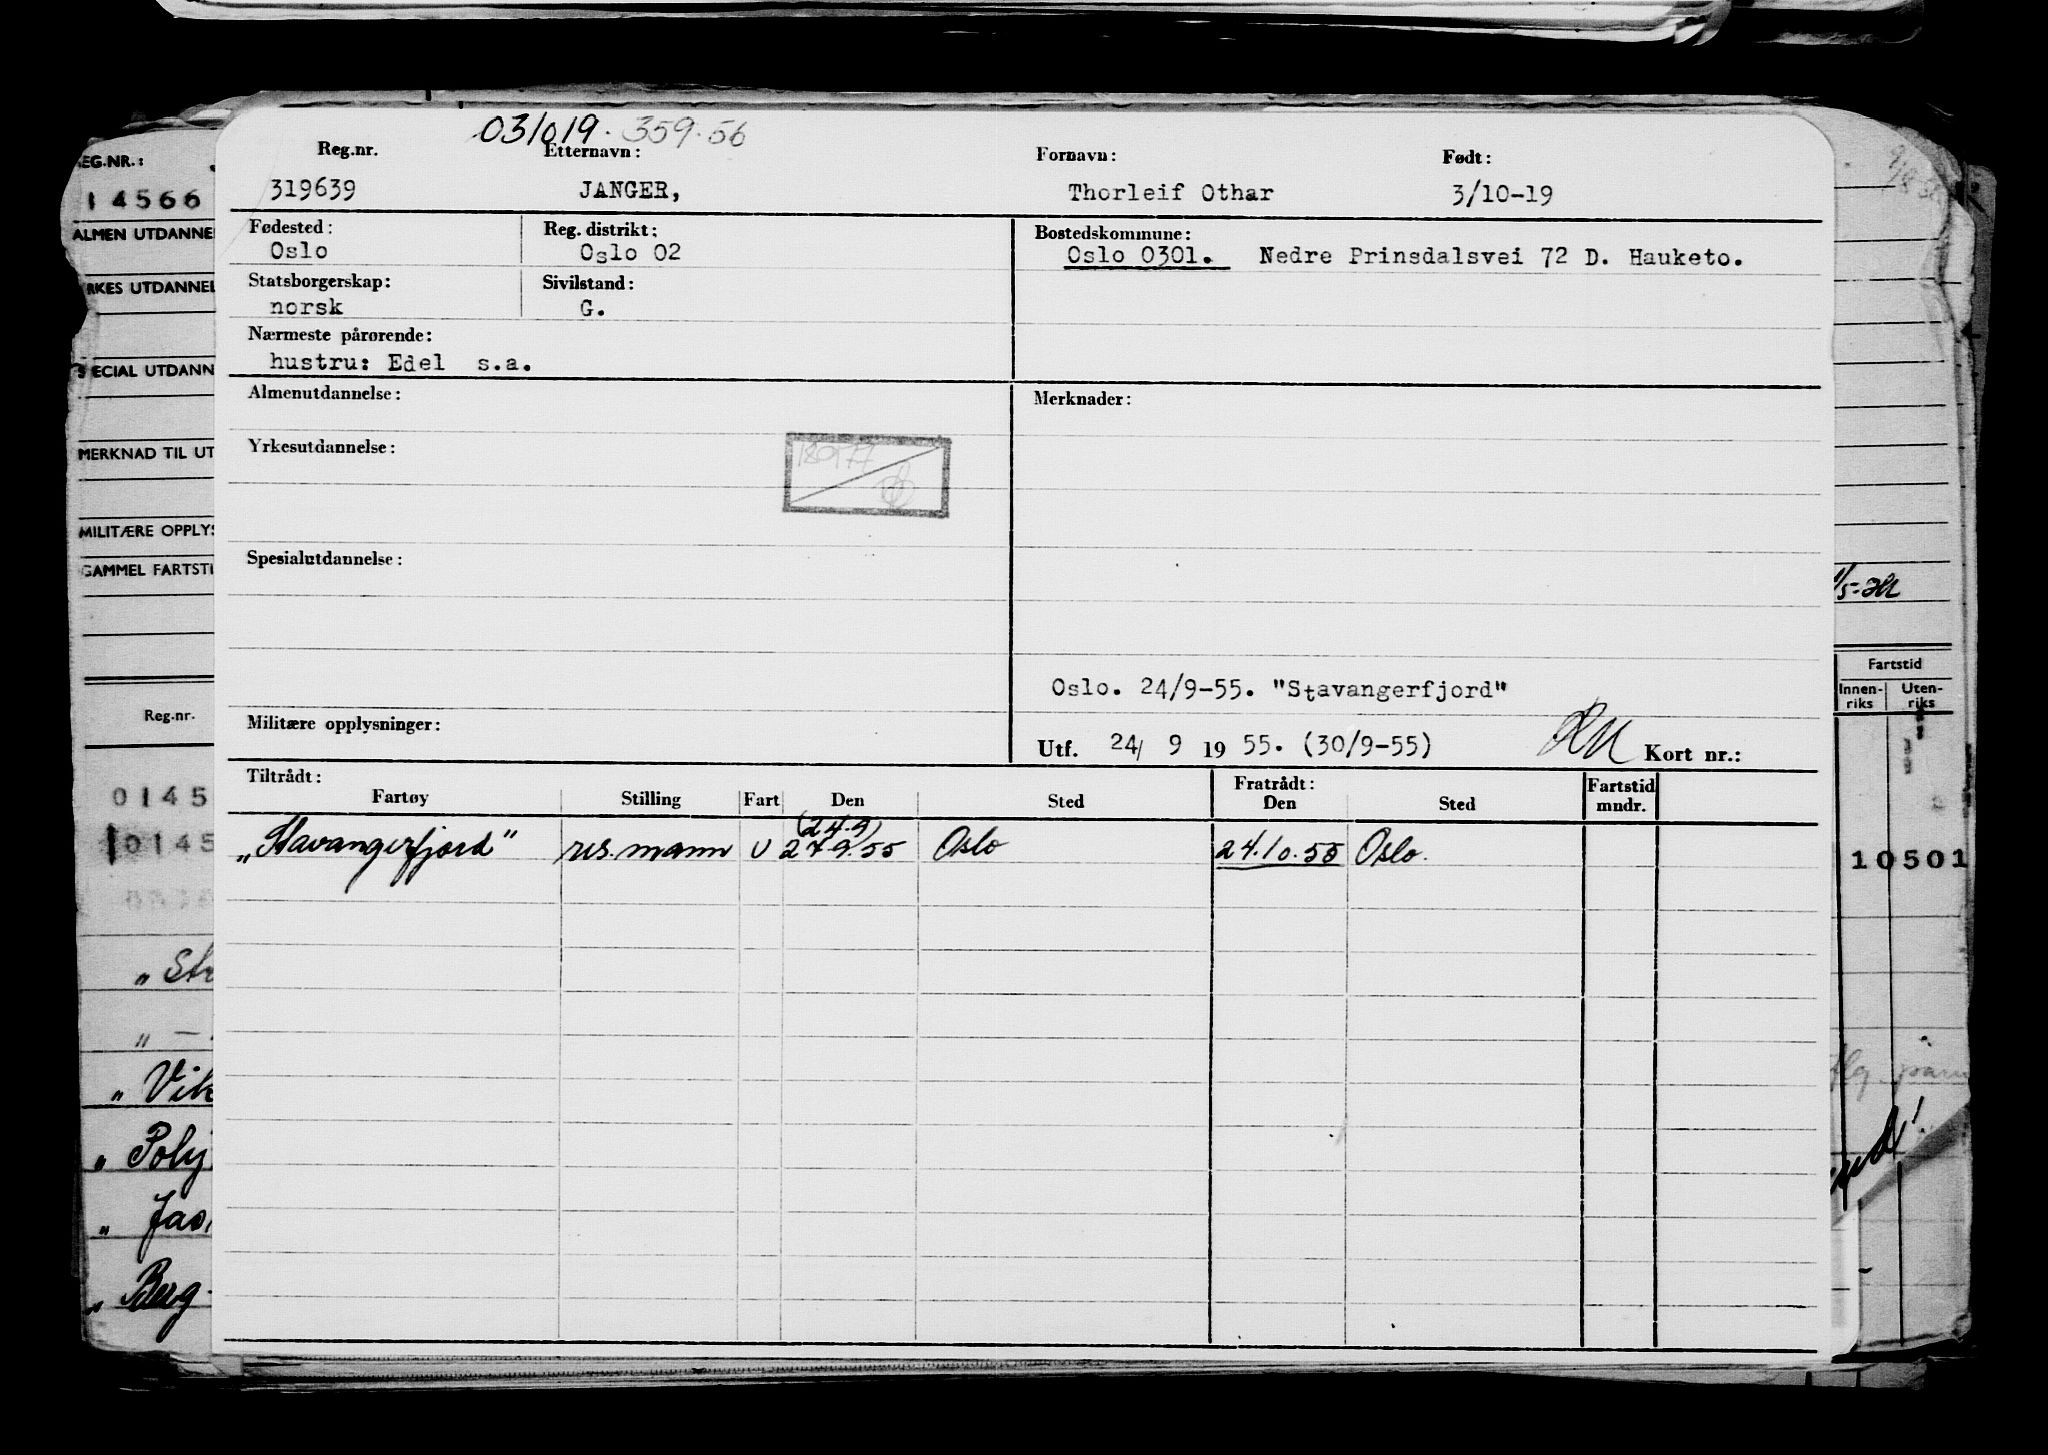 031019. 359.56
Reg.nr. Etternavn: Fornavn: Født:
319639 JANGER, Thorleif Othar 3/10-19
Fødested: Reg. distrikt: Bostedskommune:
Oslo Oslo 02 Oslo 0301. Nedre Prinsdalsvei 72 D. Hauketo.
Statsborgerskap: Sivilstand:
norsk G.
Nærmeste pårørende:
hustru: Edel s.a.
Almenutdannelse: Merknader:
Yrkesutdannelse:
Spesialutdannelse:
Oslo. 24/9-55. "Stavangerfjord"
Militære opplysninger:
Utf. 24/ 9 19 55. (30/9-55) Kort nr.:
Tiltrådt: Fratrådt: Fartstid
Fartøy Stilling Fart Den Sted Den Sted mndr.
(24.9)
„Stavangerfjord" res.mann U 27.9.55 Oslo 24.10.55 Oslo.
EG.NR.:
14566
ALMEN UTDANNE
RKES UTDANNEL
SPECIAL UTDANN
MERKNAD TIL UT
MILITÆRE OPPLYS
GAMMEL FARTSTI
Reg.nr.
0145
0145
„ St
„ —
„ Vik
„ Poly
„ Jas
„ Berg
Fartstid
Innen-riks Uten-riks
10501